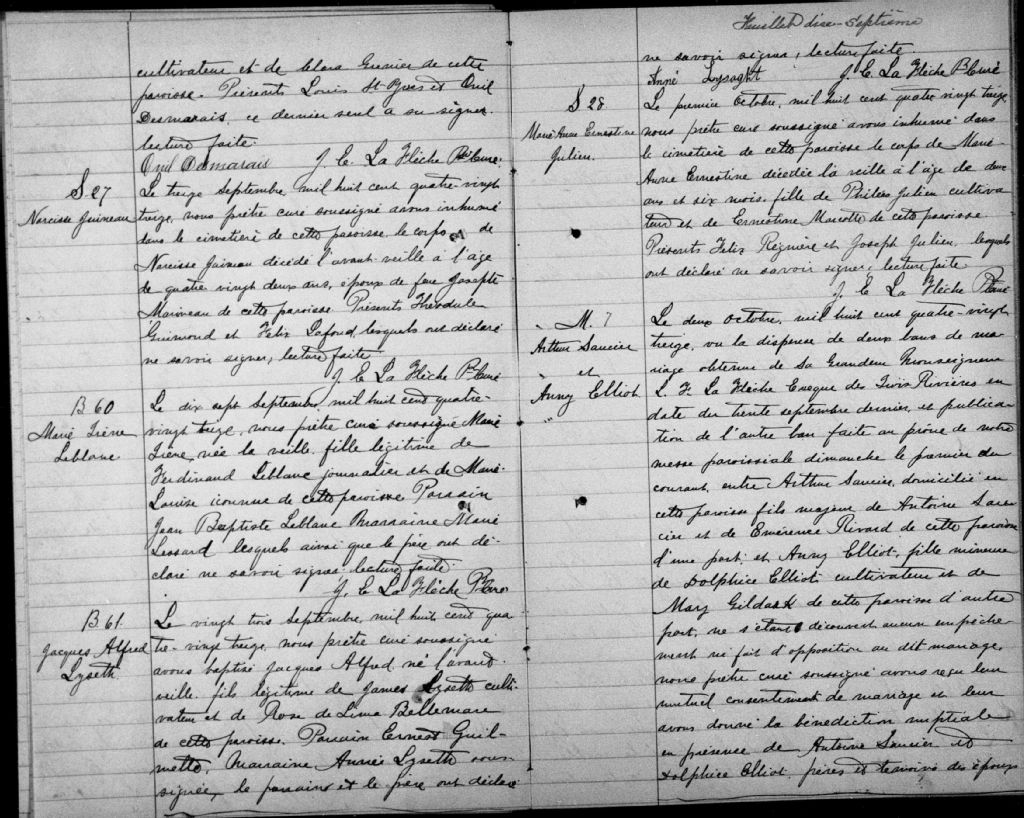 cultivateur et de Clara Grenier de cette
paroisse. Présents Louis St-Yves et Ovil
Desmarais, ce dernier seul a su signer.
lecture faite.
Ovil Desmarais J. E. La Flèche Ptre Curé.
S 27
Narcisse Guineau
Le treize septembre, mil huit cent quatre-vingt
treize, nous prêtre curé soussigné avons inhumé
dans le cimetière de cette paroisse, le corps de
Narcisse décédé l'avant-veille à l'âge
de quatre vingt deux ans, époux de feue Josephte
Marineau de cette paroisse. Présents Théodule
Guimond et Felix Lafond, lesquels ont déclaré
ne savoir signer, lecture faite
J. E. La Flèche Ptre Curé
B 60
Marie Irène
Leblanc
Le dix sept Septembre, mil huit cent quatre-
vingt treize, nous prêtre curé soussigné Marie
Irène, née la veille, fille légitime de
Ferdinand Leblanc journalier et de Marie-
Louise inconnue de cette paroisse Parrain
Jean Baptiste Leblanc Marraine Marie
Lessard lesquels ainsi que le père ont dé-
claré ne savoir signer lecture faite
J. E. La Flèche Ptre
B 61.
Jacques Alfred
Lyseth
Le vingt trois Septembre, mil huit cent qua
tre-vingt treize, nous prêtre curé soussigné
avons baptisé Jacques Alfred né l'avant-
veille, fils légitime de James Lyseth culti-
vateur et de Rose de Lima Bellemare
de cette paroisse. Parrain Ernest Guil-
mette, Marraine Annie Lyseth sous-
signée, le parrain et le père ont déclaré
Feuillet dix-septième
ne savoir signer, lecture faite
Anné Lysaght J. E. La Flèche Ptre Curé
S 28
Marie Anne Ernestine
Julien.
Le premier Octobre, mil huit cent quatre vingt treize,
nous prêtre curé soussigné avons inhumé dans
le cimetière de cette paroisse le corps de Marie-
Anne Ernestine décédée la veille à l'âge de deux
ans et six mois, fille de Philéas Julien cultiva-
teur et de Ernestine Marcotte de cette paroisse
Présents Felix Régnière et Joseph Julien, lesquels
ont déclaré ne savoir signer, lecture faite
J. E La Flèche Ptre Curé
M. 7
Arthur Saucier
et
Anny Elliot
Le deux Octobre, mil huit cent quatre-vingt
treize, vu la dispense de deux bans de ma-
riage obtenue de Sa Grandeur Monseigneur
L. F. La Flèche Eveque des Trois Rivières en
date du trente septembre dernier, et publica-
tion de l'autre ban faite au prône de notre
messe paroissiale dimanche le premier du
courant, entre Arthur Saucier, domicilié en
cette paroisse fils majeur de Antoine Sau-
cier et de Emérence Rivard de cette paroisse
d'une part, et Anny Elliot, fille mineure
de Dolphice Elliot cultivateur et de
May Gildark de cette paroisse d'autre
part, ne s'étant découvert aucun empêche-
ment ni fait d'opposition au dit mariage,
nous prêtre curé soussigné avons reçu leur
mutuel consentement de mariage et leur
avons donné la bénédiction nuptiale
en présence de Antoine Saucier, et
Dolphice Elliot, pères et témoins des époux